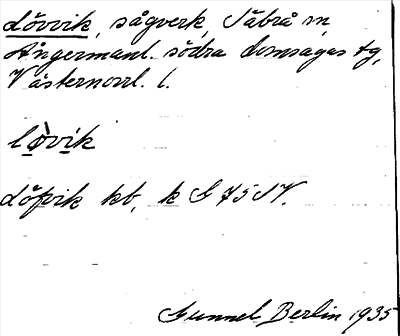 Lövvik, sågverk, Säbrå sn,
Ångermanl. södra domsagas tg,
Västernorrl. l.
lø̀vik
Löfvik kb, k G 75 SV.
Gunnel Berlin 1935